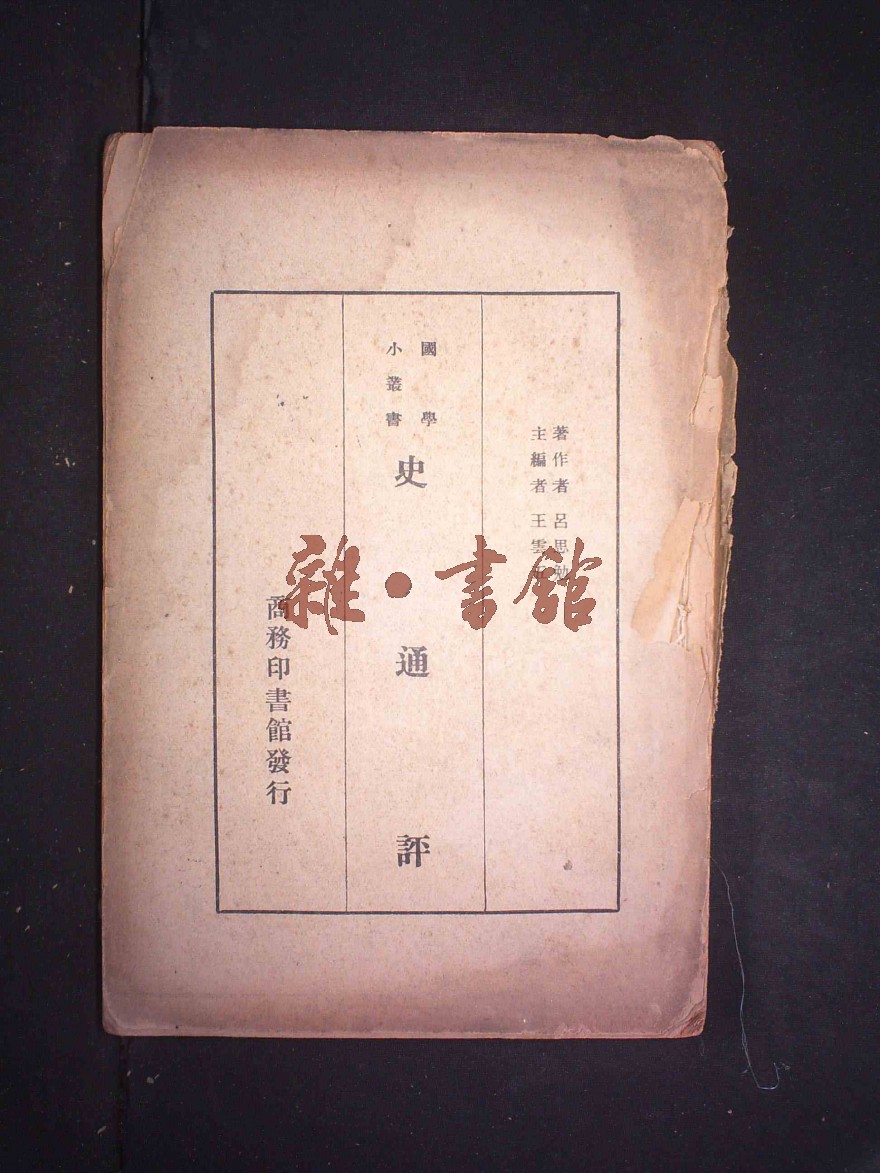 著作者 呂思勉
主編者 王雲五
國學
小叢書
史通評
商務印書館發行
雜·書館